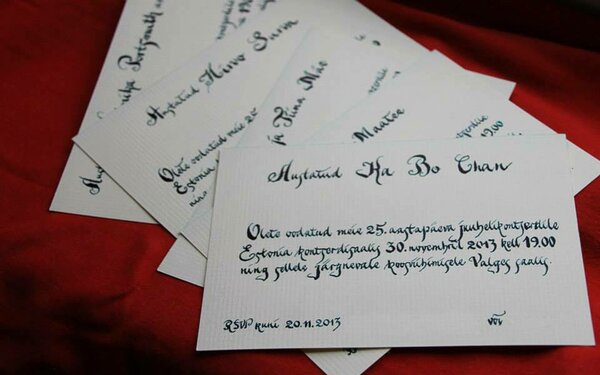 Austatud Ka Bo Chan
Olete oodatud meie 25. aastapäeva juubelikontserdile
Estonia kontserdisaalis 30. novembril 2013 kell 19.00
ning sellele järgnevale koosviibimisele Valges saalis.
RSVP kuni 20.11.2013
või
Austatud Hirvo Surva
Olete oodatud meie 25
Estonia
ja Tiina Mäe
Maatee
19.00